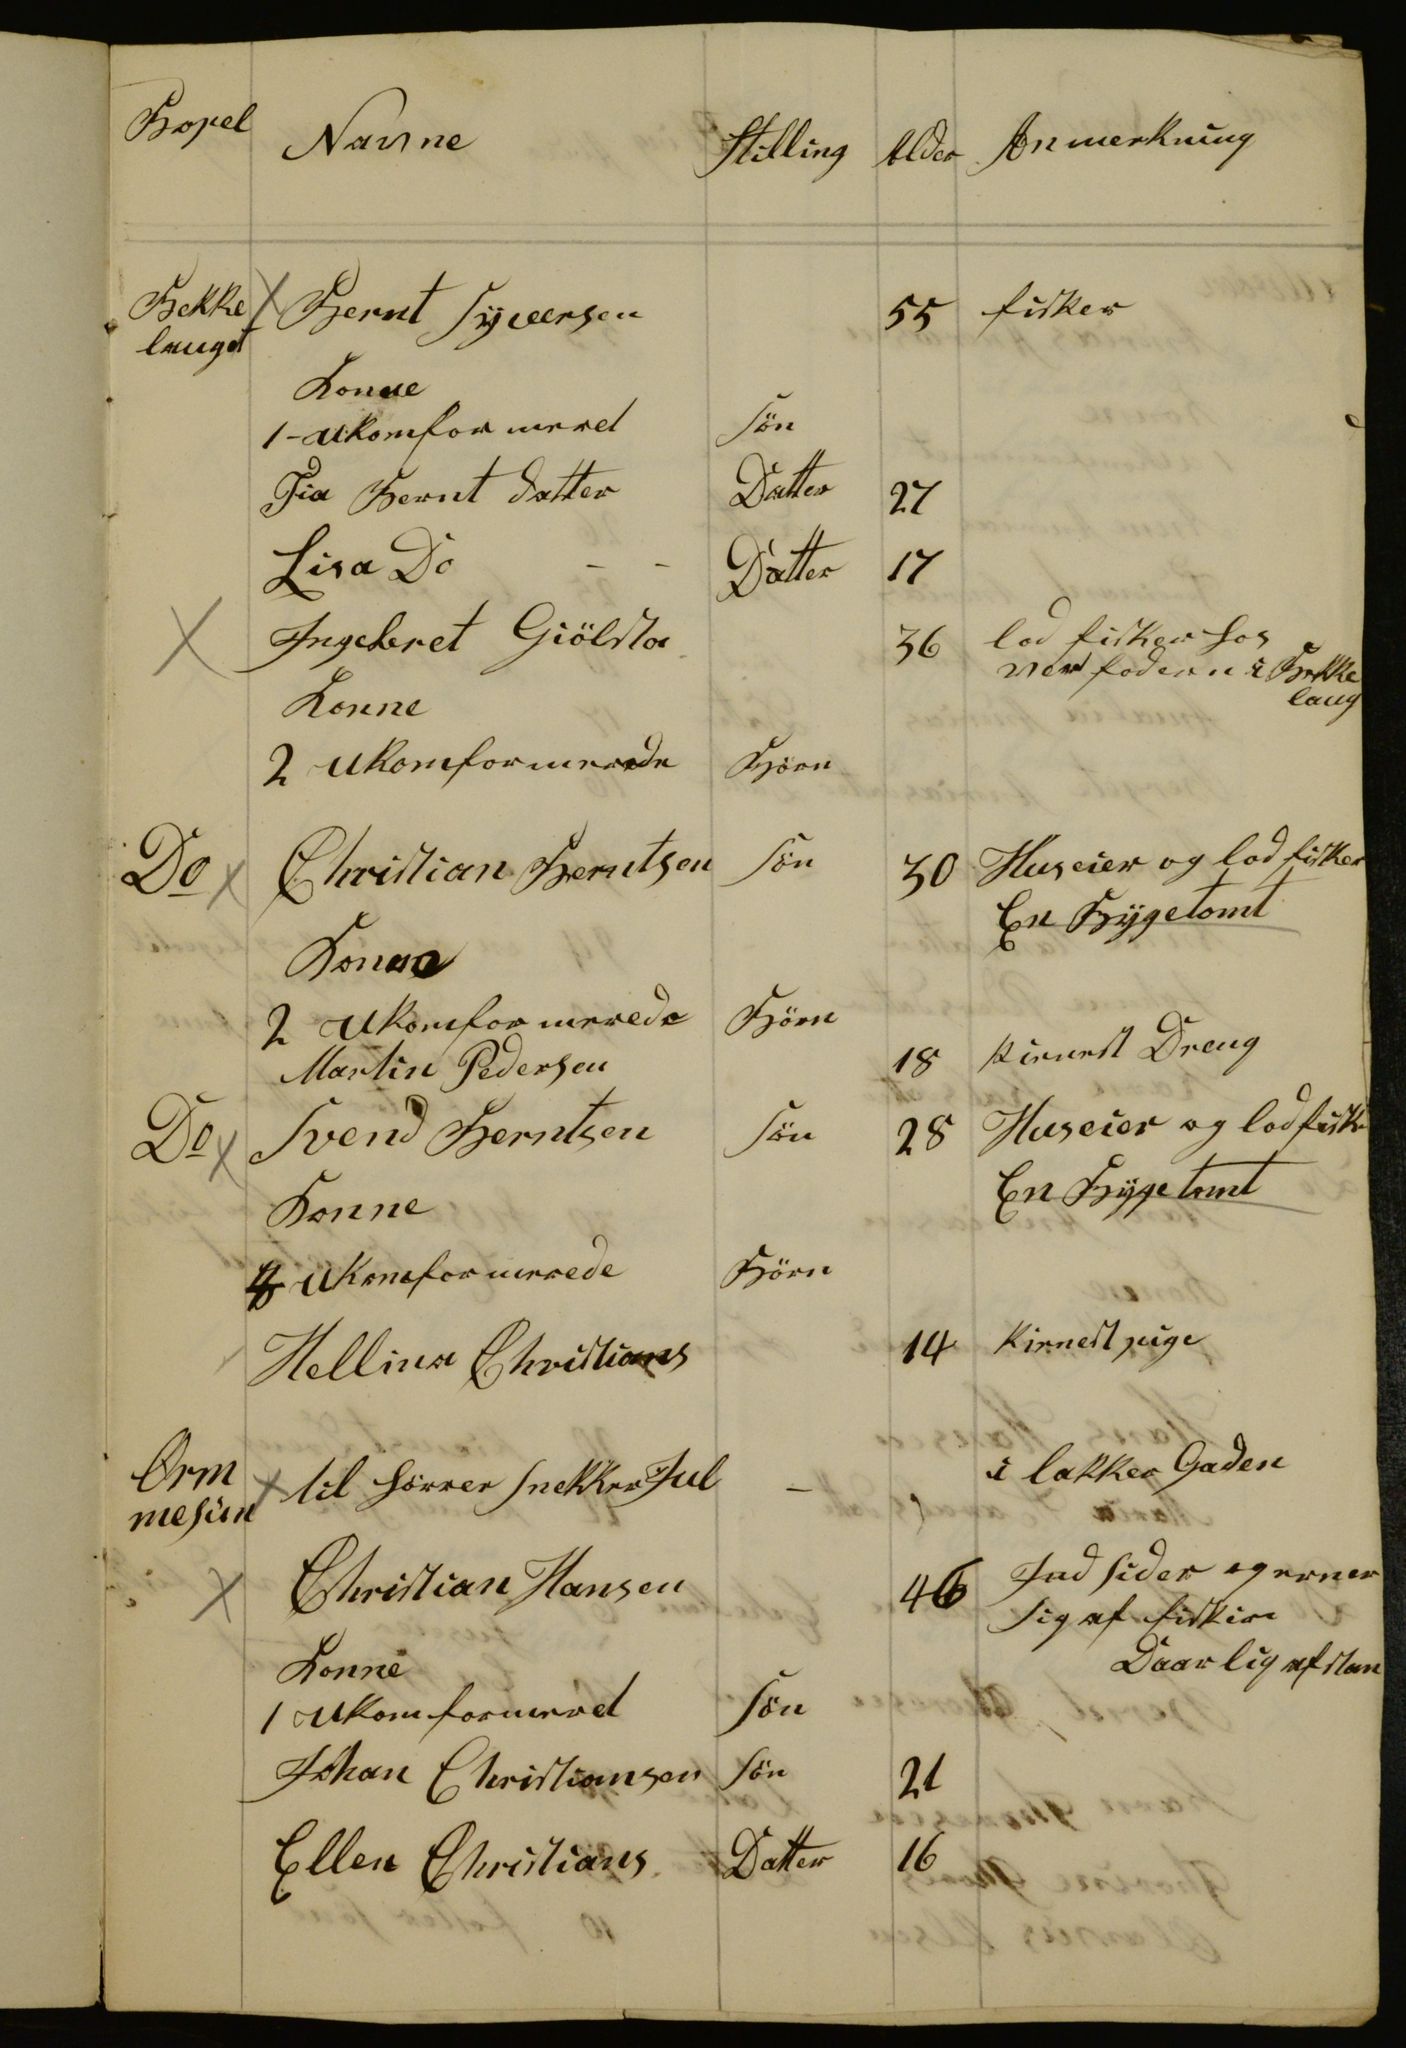 Bopel Navne Stilling Alder Anmerkning
Bekke X Bernt Syversen 55 fisker
lauget
Konne
1 - ukomformeret Sön
Pia Bernt datter Datter 27
Lisa Do - - Datter 17
X Ingebret Giölsta 36 lod fisker hos
vær foderen i Bekke
laug
Konne
2 ukomformerede Börn
Do X Christian Berntsen Sön 30 Huseier og lod fisker
En Bygetomt
Konne
2 ukomformerede Börn
Martin Pedersen 18 kirnest Dreng
Do X Svend Berntsen Sön 28 Huseier og lod fisker
En Bygetomt
Konne
ukomformerede Börn
Hellina Christians 14 kirnest pige
Orm X til hörrer Snekker Jul - i lakker Gaden
mesun
X Christian Hansen 46 Ind sider og erner
sig af fiskire
Daarlig afstan
Konne
1 ukomformeret Sön
Johan Christiansen Sön 21
Ellen Christians Datter 16